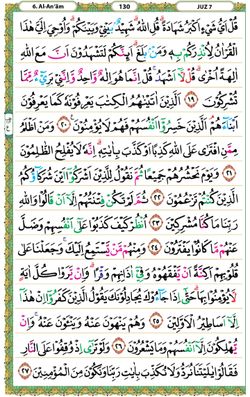 6. Al-An'ām 130 JUZ 7
قُلْ اَيُّ شَيْءٍ اَكْبَرُ شَهَادَةً ۗ قُلِ اللّٰهُ ۗ شَهِيْدٌۢ بَيْنِيْ وَبَيْنَكُمْ ۗ وَاُوْحِيَ اِلَيَّ هٰذَا
الْقُرْاٰنُ لِاُنْذِرَكُمْ بِهٖ وَمَنْۢ بَلَغَ ۗ اَىِٕنَّكُمْ لَتَشْهَدُوْنَ اَنَّ مَعَ اللّٰهِ
اٰلِهَةً اُخْرٰى ۗ قُلْ لَّآ اَشْهَدُ ۚ قُلْ اِنَّمَا هُوَ اِلٰهٌ وَّاحِدٌ وَّاِنَّنِيْ بَرِيْۤءٌ مِّمَّا
تُشْرِكُوْنَ ۝١٩ اَلَّذِيْنَ اٰتَيْنٰهُمُ الْكِتٰبَ يَعْرِفُوْنَهٗ كَمَا يَعْرِفُوْنَ
اَبْنَآءَهُمْ ۘ اَلَّذِيْنَ خَسِرُوْٓا اَنْفُسَهُمْ فَهُمْ لَا يُؤْمِنُوْنَ ۝٢٠ وَمَنْ اَظْلَمُ
مِمَّنِ افْتَرٰى عَلَى اللّٰهِ كَذِبًا اَوْ كَذَّبَ بِاٰيٰتِهٖ ۗ اِنَّهٗ لَا يُفْلِحُ الظّٰلِمُوْنَ
۝٢١ وَيَوْمَ نَحْشُرُهُمْ جَمِيْعًا ثُمَّ نَقُوْلُ لِلَّذِيْنَ اَشْرَكُوْٓا اَيْنَ شُرَكَآؤُكُمُ
الَّذِيْنَ كُنْتُمْ تَزْعُمُوْنَ ۝٢٢ ثُمَّ لَمْ تَكُنْ فِتْنَتُهُمْ اِلَّآ اَنْ قَالُوْا وَاللّٰهِ
رَبِّنَا مَا كُنَّا مُشْرِكِيْنَ ۝٢٣ اُنْظُرْ كَيْفَ كَذَبُوْا عَلٰٓى اَنْفُسِهِمْ وَضَلَّ
عَنْهُمْ مَّا كَانُوْا يَفْتَرُوْنَ ۝٢٤ وَمِنْهُمْ مَّنْ يَّسْتَمِعُ اِلَيْكَ ۚ وَجَعَلْنَا عَلٰى
قُلُوْبِهِمْ اَكِنَّةً اَنْ يَّفْقَهُوْهُ وَفِيْٓ اٰذَانِهِمْ وَقْرًا ۗ وَاِنْ يَّرَوْا كُلَّ اٰيَةٍ
لَّا يُؤْمِنُوْا بِهَا ۗ حَتّٰٓى اِذَا جَآءُوْكَ يُجَادِلُوْنَكَ يَقُوْلُ الَّذِيْنَ كَفَرُوْٓا اِنْ هٰذَآ
اِلَّآ اَسَاطِيْرُ الْاَوَّلِيْنَ ۝٢٥ وَهُمْ يَنْهَوْنَ عَنْهُ وَيَنْـَٔوْنَ عَنْهُ ۚ وَاِنْ
يُّهْلِكُوْنَ اِلَّآ اَنْفُسَهُمْ وَمَا يَشْعُرُوْنَ ۝٢٦ وَلَوْ تَرٰٓى اِذْ وُقِفُوْا عَلَى النَّارِ
فَقَالُوْا يٰلَيْتَنَا نُرَدُّ وَلَا نُكَذِّبَ بِاٰيٰتِ رَبِّنَا وَنَكُوْنَ مِنَ الْمُؤْمِنِيْنَ ۝٢٧